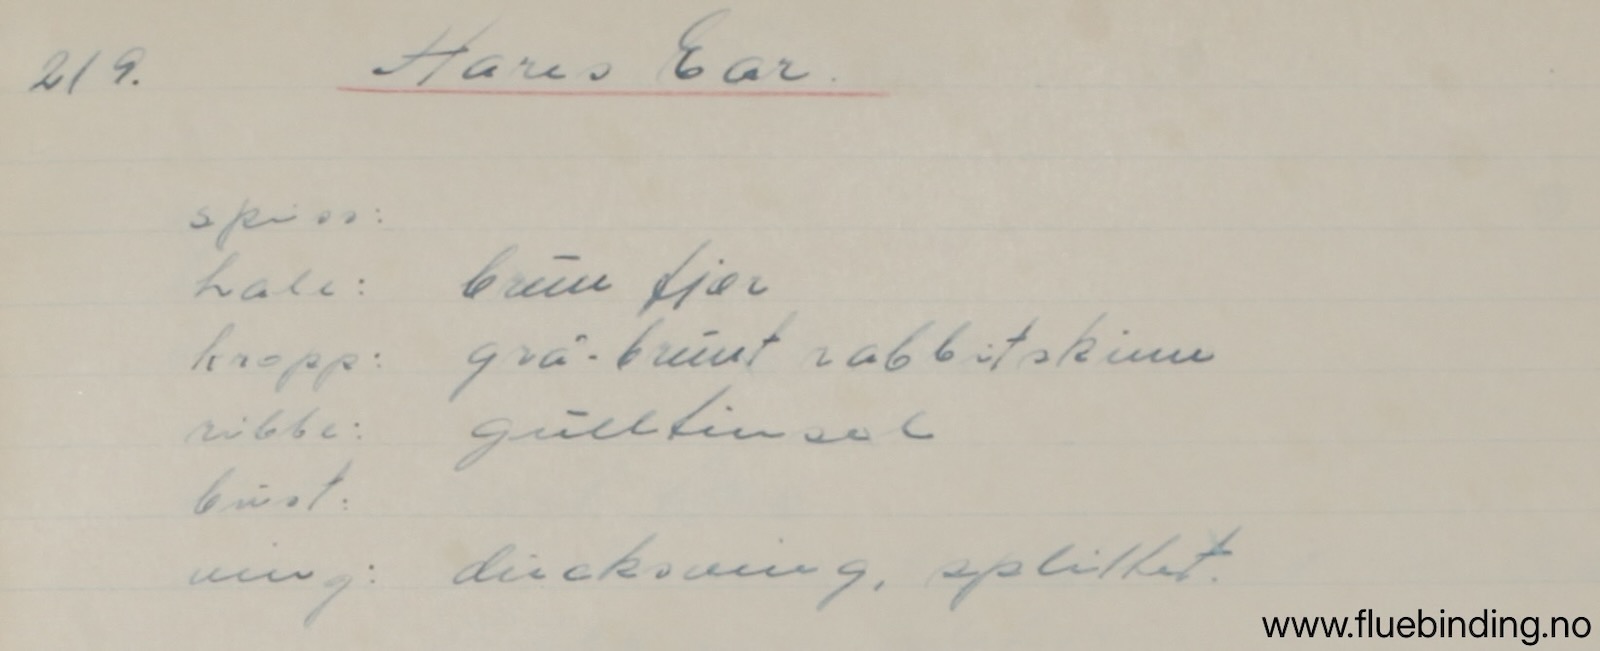 219. Hares Ear.
spiss:
hale: brun fjær
kropp: grå-brunt rabbitskinn
ribbe: gulltinsel
bust:
ving: duckswing, splittet.
www.fluebinding.no